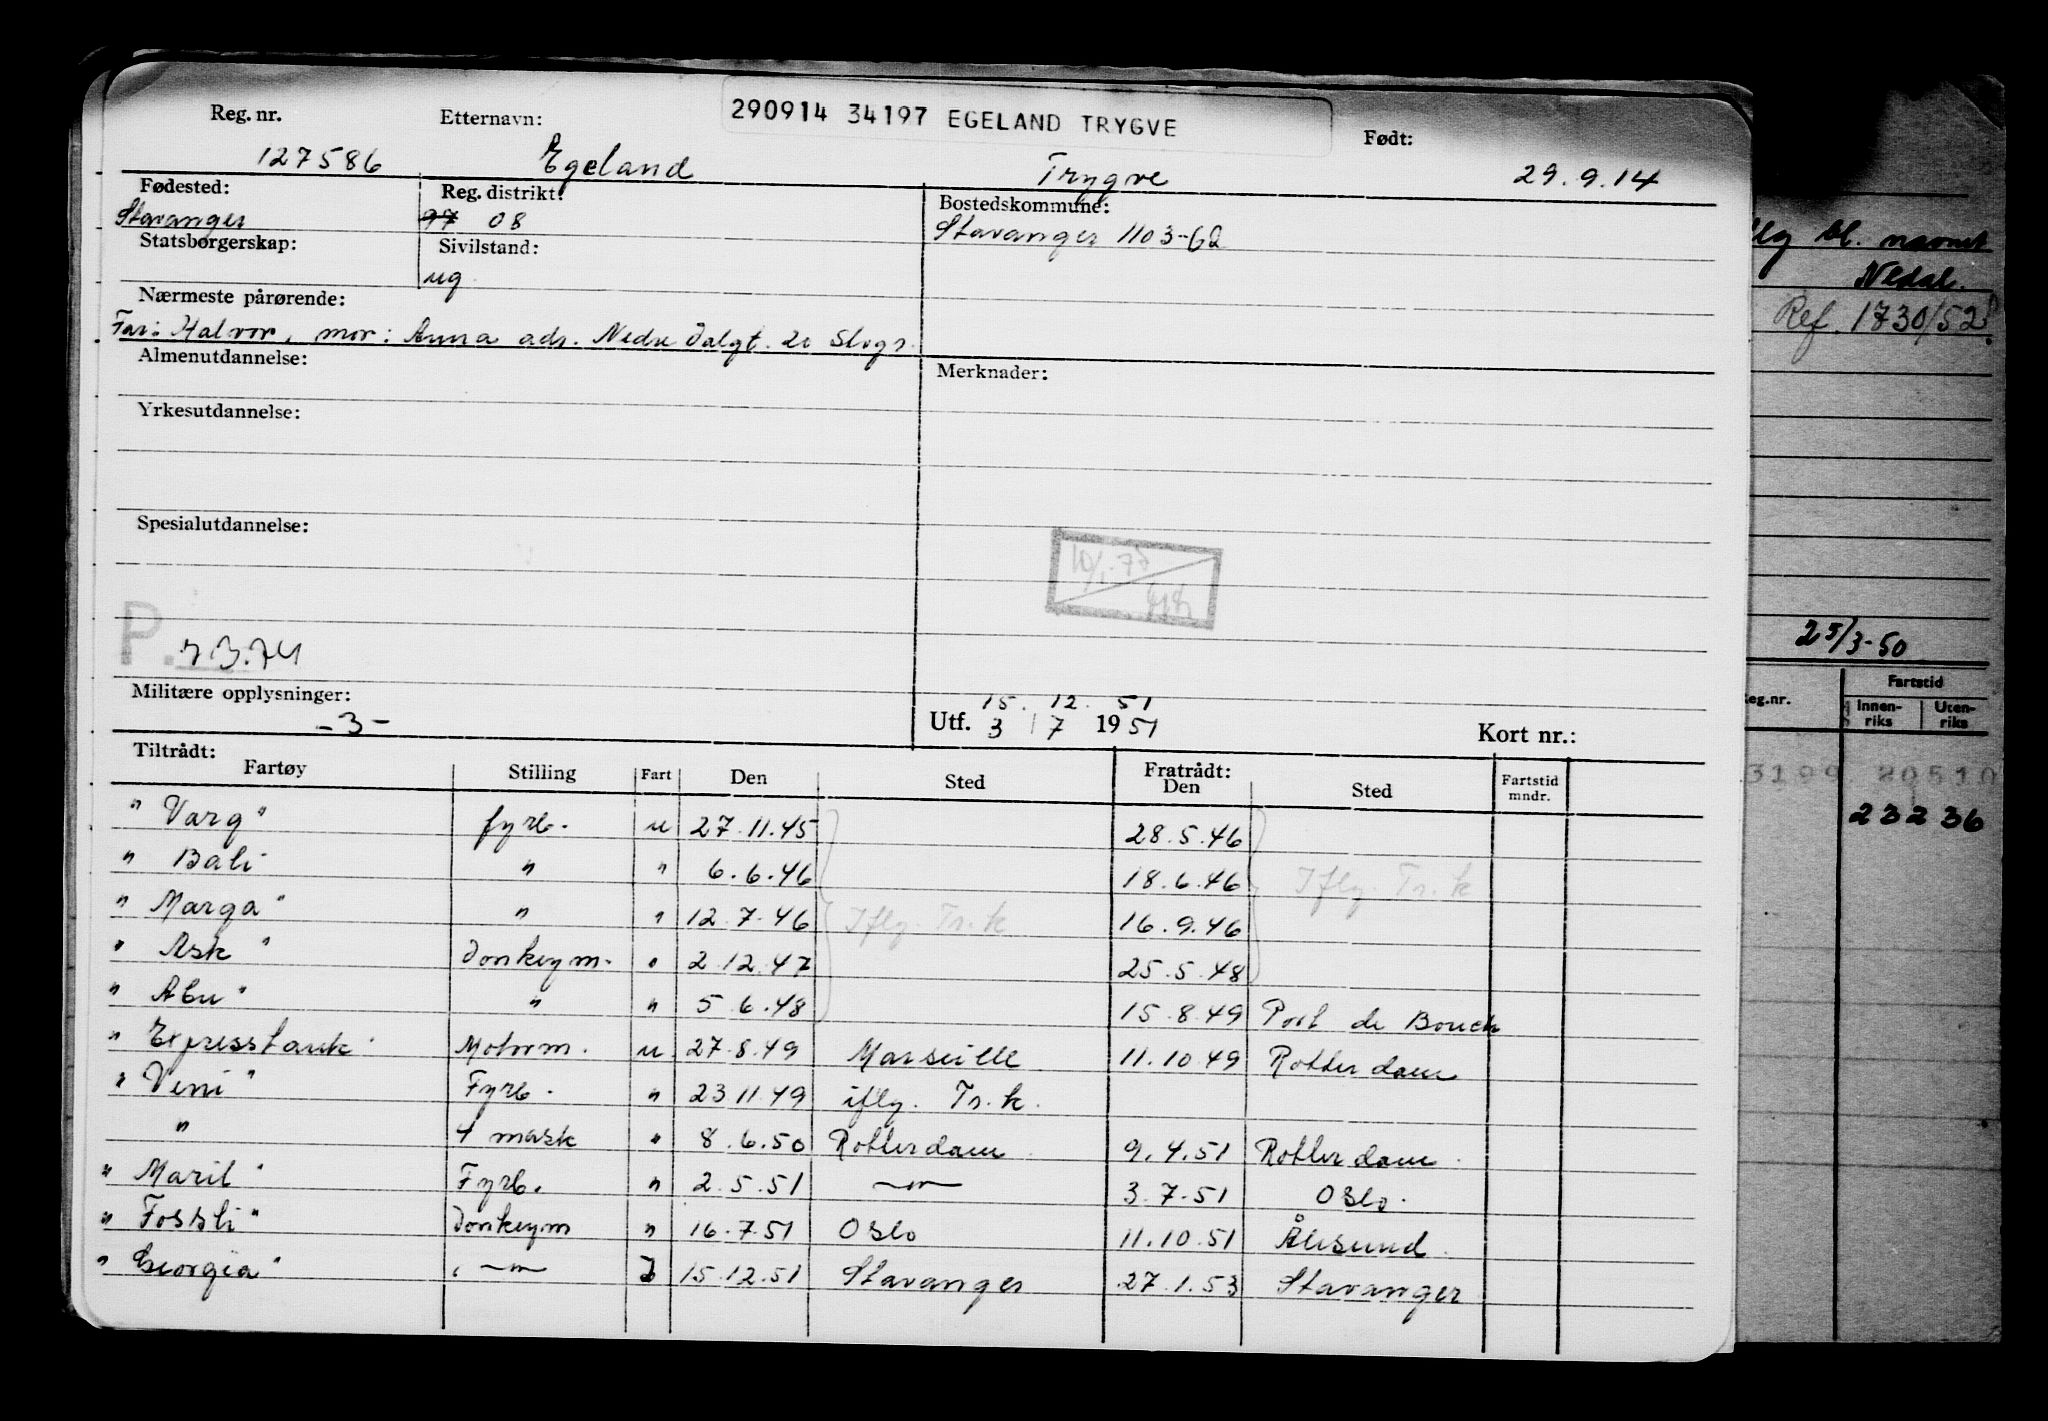 290914 34197 EGELAND TRYGVE
Reg. nr. Etternavn: Født:
127586 Egeland Trygve 29.9.14
Fødested: Reg. distrikt: Bostedskommune:
Stavanger 97 08 Stavanger 1103-62
Statsborgerskap: Sivilstand:
ug.
Nærmeste pårørende:
Far: Halvor, mor: Anna adr. Nedre Dalgt. 20 Stvgr.
Almenutdannelse: Merknader:
Yrkesutdannelse:
Spesialutdannelse:
10/1-75
P. 7.3.74
Militære opplysninger:
-3-
15. 12. 51
Utf. 3 / 7 1951 Kort nr.:
Tiltrådt: Fratrådt:
Fartøy Stilling Fart Den Sted Den Sted Fartstid mndr.
" Varg " fyrb. u 27.11.45 28.5.46
" Bali " " 6.6.46 18.6.46 Iflg. Tr.k
" Marga " " " 12.7.46 Iflg. Tr.k 16.9.46
" Ask " Donkeym. " 2.12.47 25.5.48
" Abu " " " 5.6.48 15.8.49 Port de Bouch
" Expresstank " Motorm. u 27.8.49 Marseille 11.10.49 Rotterdam
" Veni " Fyrb. " 23.11.49 iflg. Tr.k.
" 4 mask " 8.6.50 Rotterdam 9.4.51 Rotterdam.
" Maril " Fyrb. " 2.5.51 —"— 3.7.51 Oslo.
" Fossli " Donkeym " 16.7.51 Oslo 11.10.51 Ålesund.
" Georgia " —"— 15.12.51 Stavanger 27.1.53 Stavanger
bl. navnet
Nedal.
Ref. 1730/52
25/3-50
eg.nr. Fartstid
Innen-riks Uten-riks
3199 20510
23236